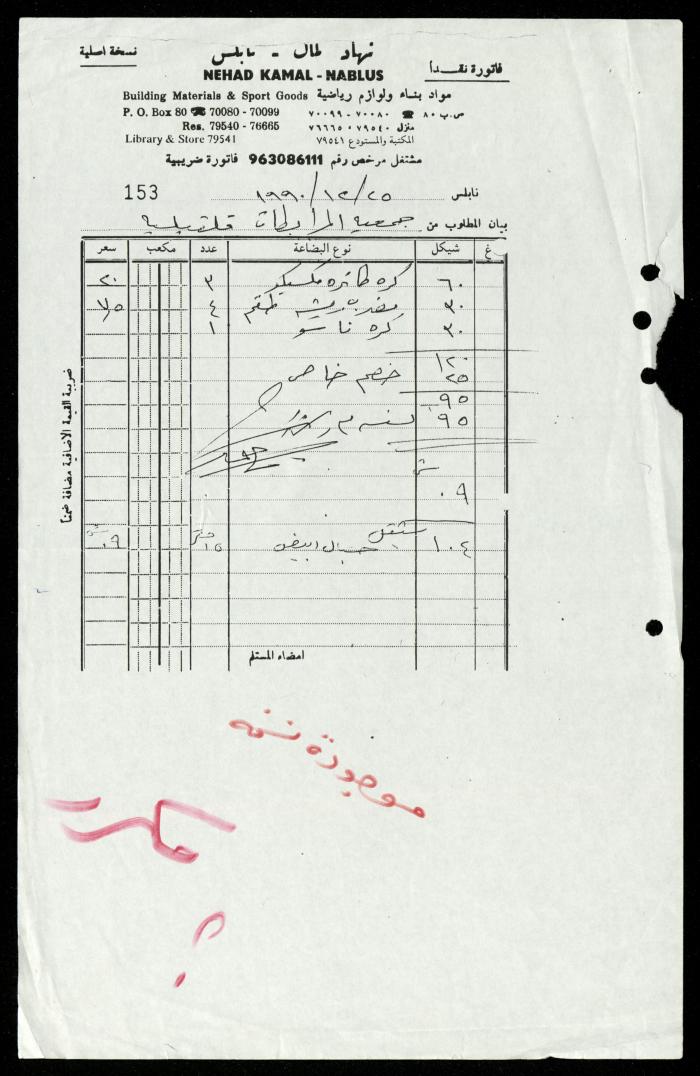 نسخة اصلية
نهاد كمال - نابلس
فاتورة نقداً
NEHAD KAMAL - NABLUS
Building Materials & Sport Goods مواد بناء ولوازم رياضية
P. O. Box 80 ☎ 70080 - 70099 ص.ب ٨٠ ☎ ٧٠٠٨٠ - ٧٠٠٩٩
Res. 79540 - 76665 منزل ٧٩٥٤٠ - ٧٦٦٦٥
Library & Store 79541 المكتبة والمستودع ٧٩٥٤١
مشتغل مرخص رقم 963086111 فاتورة ضريبية
153 نابلس ٢٥/١٢/١٩٩٠
بيان المطلوب من جمعية المرابطات قلقيلية
غ شيكل نوع البضاعة عدد مكعب سعر
٦٠ كره طائره مكسيكو ٣ ٢٠
٣٠ مضرب ريشه طقم ٤ ٧,٥
٣٠ كره ناسو ١
١٢٠
٢٥ خصم خاص
٩٥
٩٥
٠٩
١٠٤ شيقل
حبال ابيض ١٥ متر ٠٩
ضريبة القيمة الاضافية مضافة ضمناً
امضاء المستلم
موجودة نسخه
؟